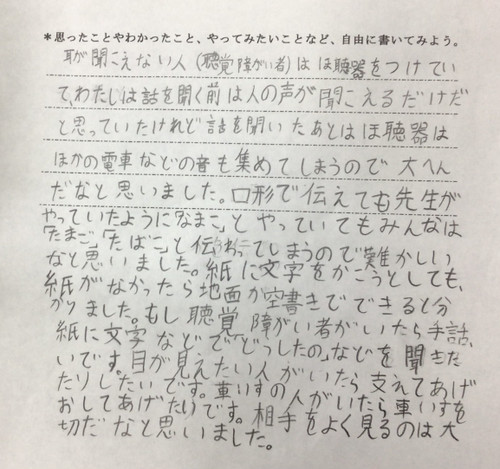 ＊思ったことやわかったこと、やってみたいことなど、自由に書いてみよう。
耳が聞こえない人(聴覚障がい者)はほ聴器をつけてい
て、わたしは話を聞く前は人の声が聞こえるだけだ
と思っていたけれど話を聞いたあとはほ聴器は
ほかの電車などの音も集めてしまうので大へん
だなと思いました。口形で伝えても先生が
やっていたように「なまこ」とやっていてもみんなは
「たまご」「たばこ」と伝わってしまうので難かしい
なと思いました。紙に文字をかこうとしても、
紙がなかったら地面か空書きでできると分
かりました。もし聴覚障がい者がいたら手話、
紙に文字などで「どっしたの」などを聞きた
いです。目が見えたい人がいたら支えてあげ
たりしたいです。車いすの人がいたら車いすを
おしてあげたいです。相手をよく見るのは大
切だなと思いました。